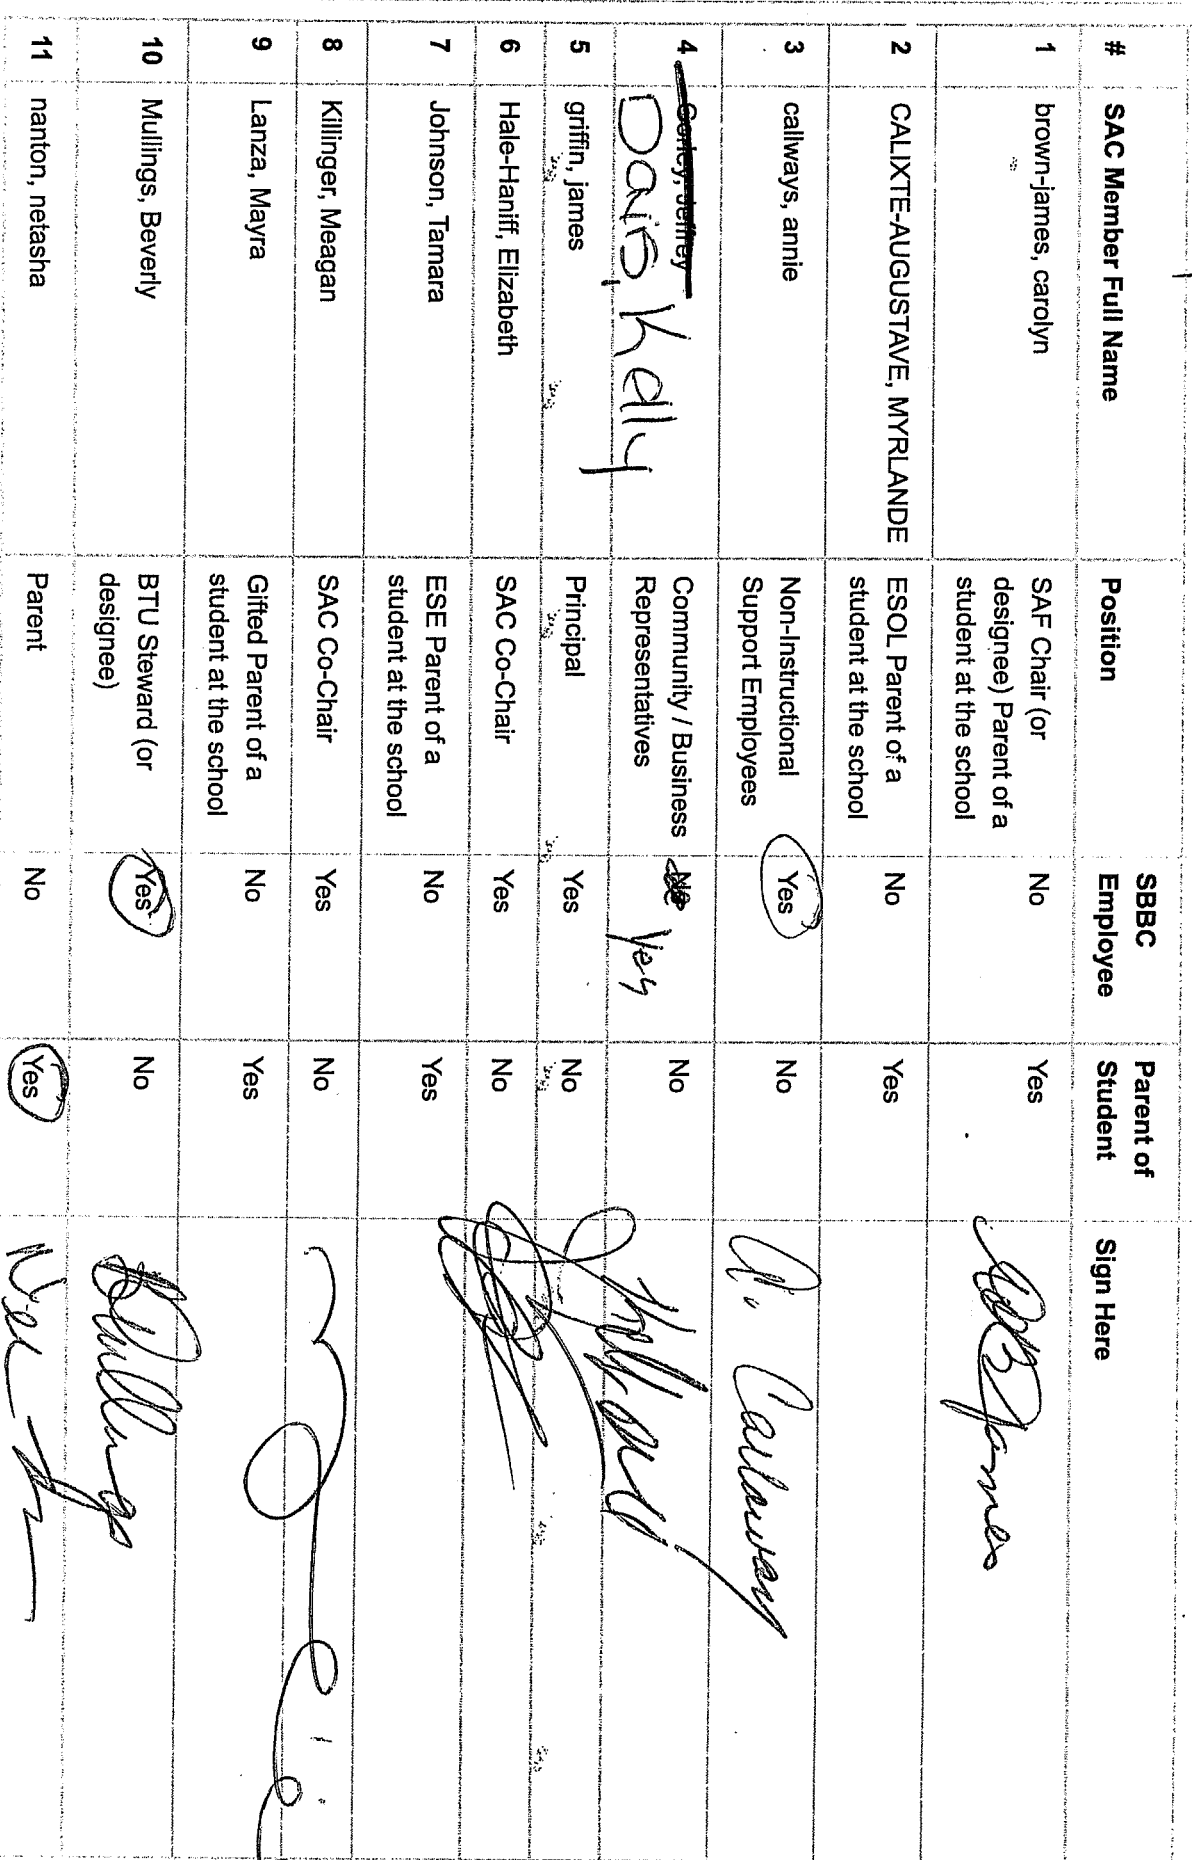 # SAC Member Full Name Position SBBC Employee Parent of Student Sign Here
1 brown-james, carolyn SAF Chair (or designee) Parent of a student at the school No Yes
2 CALIXTE-AUGUSTAVE, MYRLANDE ESOL Parent of a student at the school No Yes
3 callways, annie Non-Instructional Support Employees Yes No A. Callaway
4 Corley, Jeffrey
Davis, Kelly Community / Business Representatives No Yes No
5 griffin, james Principal Yes No
6 Hale-Haniff, Elizabeth SAC Co-Chair Yes No
7 Johnson, Tamara ESE Parent of a student at the school No Yes
8 Killinger, Meagan SAC Co-Chair Yes No
9 Lanza, Mayra Gifted Parent of a student at the school No Yes
10 Mullings, Beverly BTU Steward (or designee) Yes No BMullings
11 nanton, netasha Parent No Yes